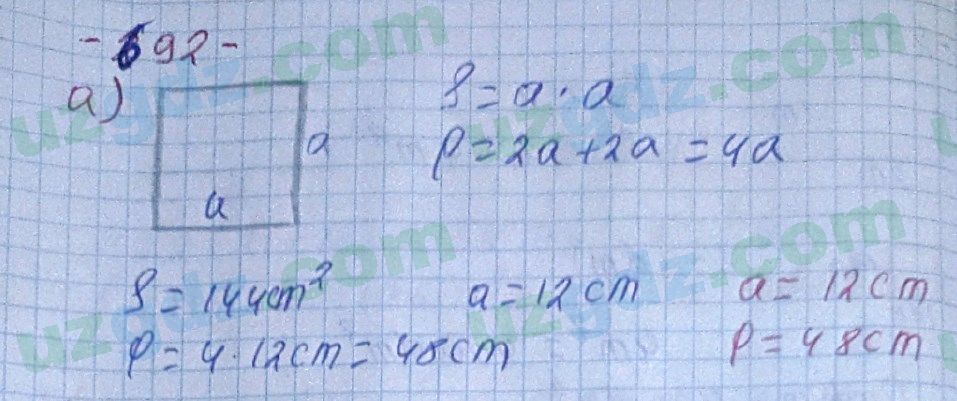 - 692 -
a)
a
a
S = a · a
P = 2a + 2a = 4a
S = 144cm²
a = 12 cm
a = 12 cm
P = 4 · 12cm = 48cm
P = 48cm
uzgdz.com
uzgdz.com
uzgdz.com
uzgdz.com
uzgdz.com